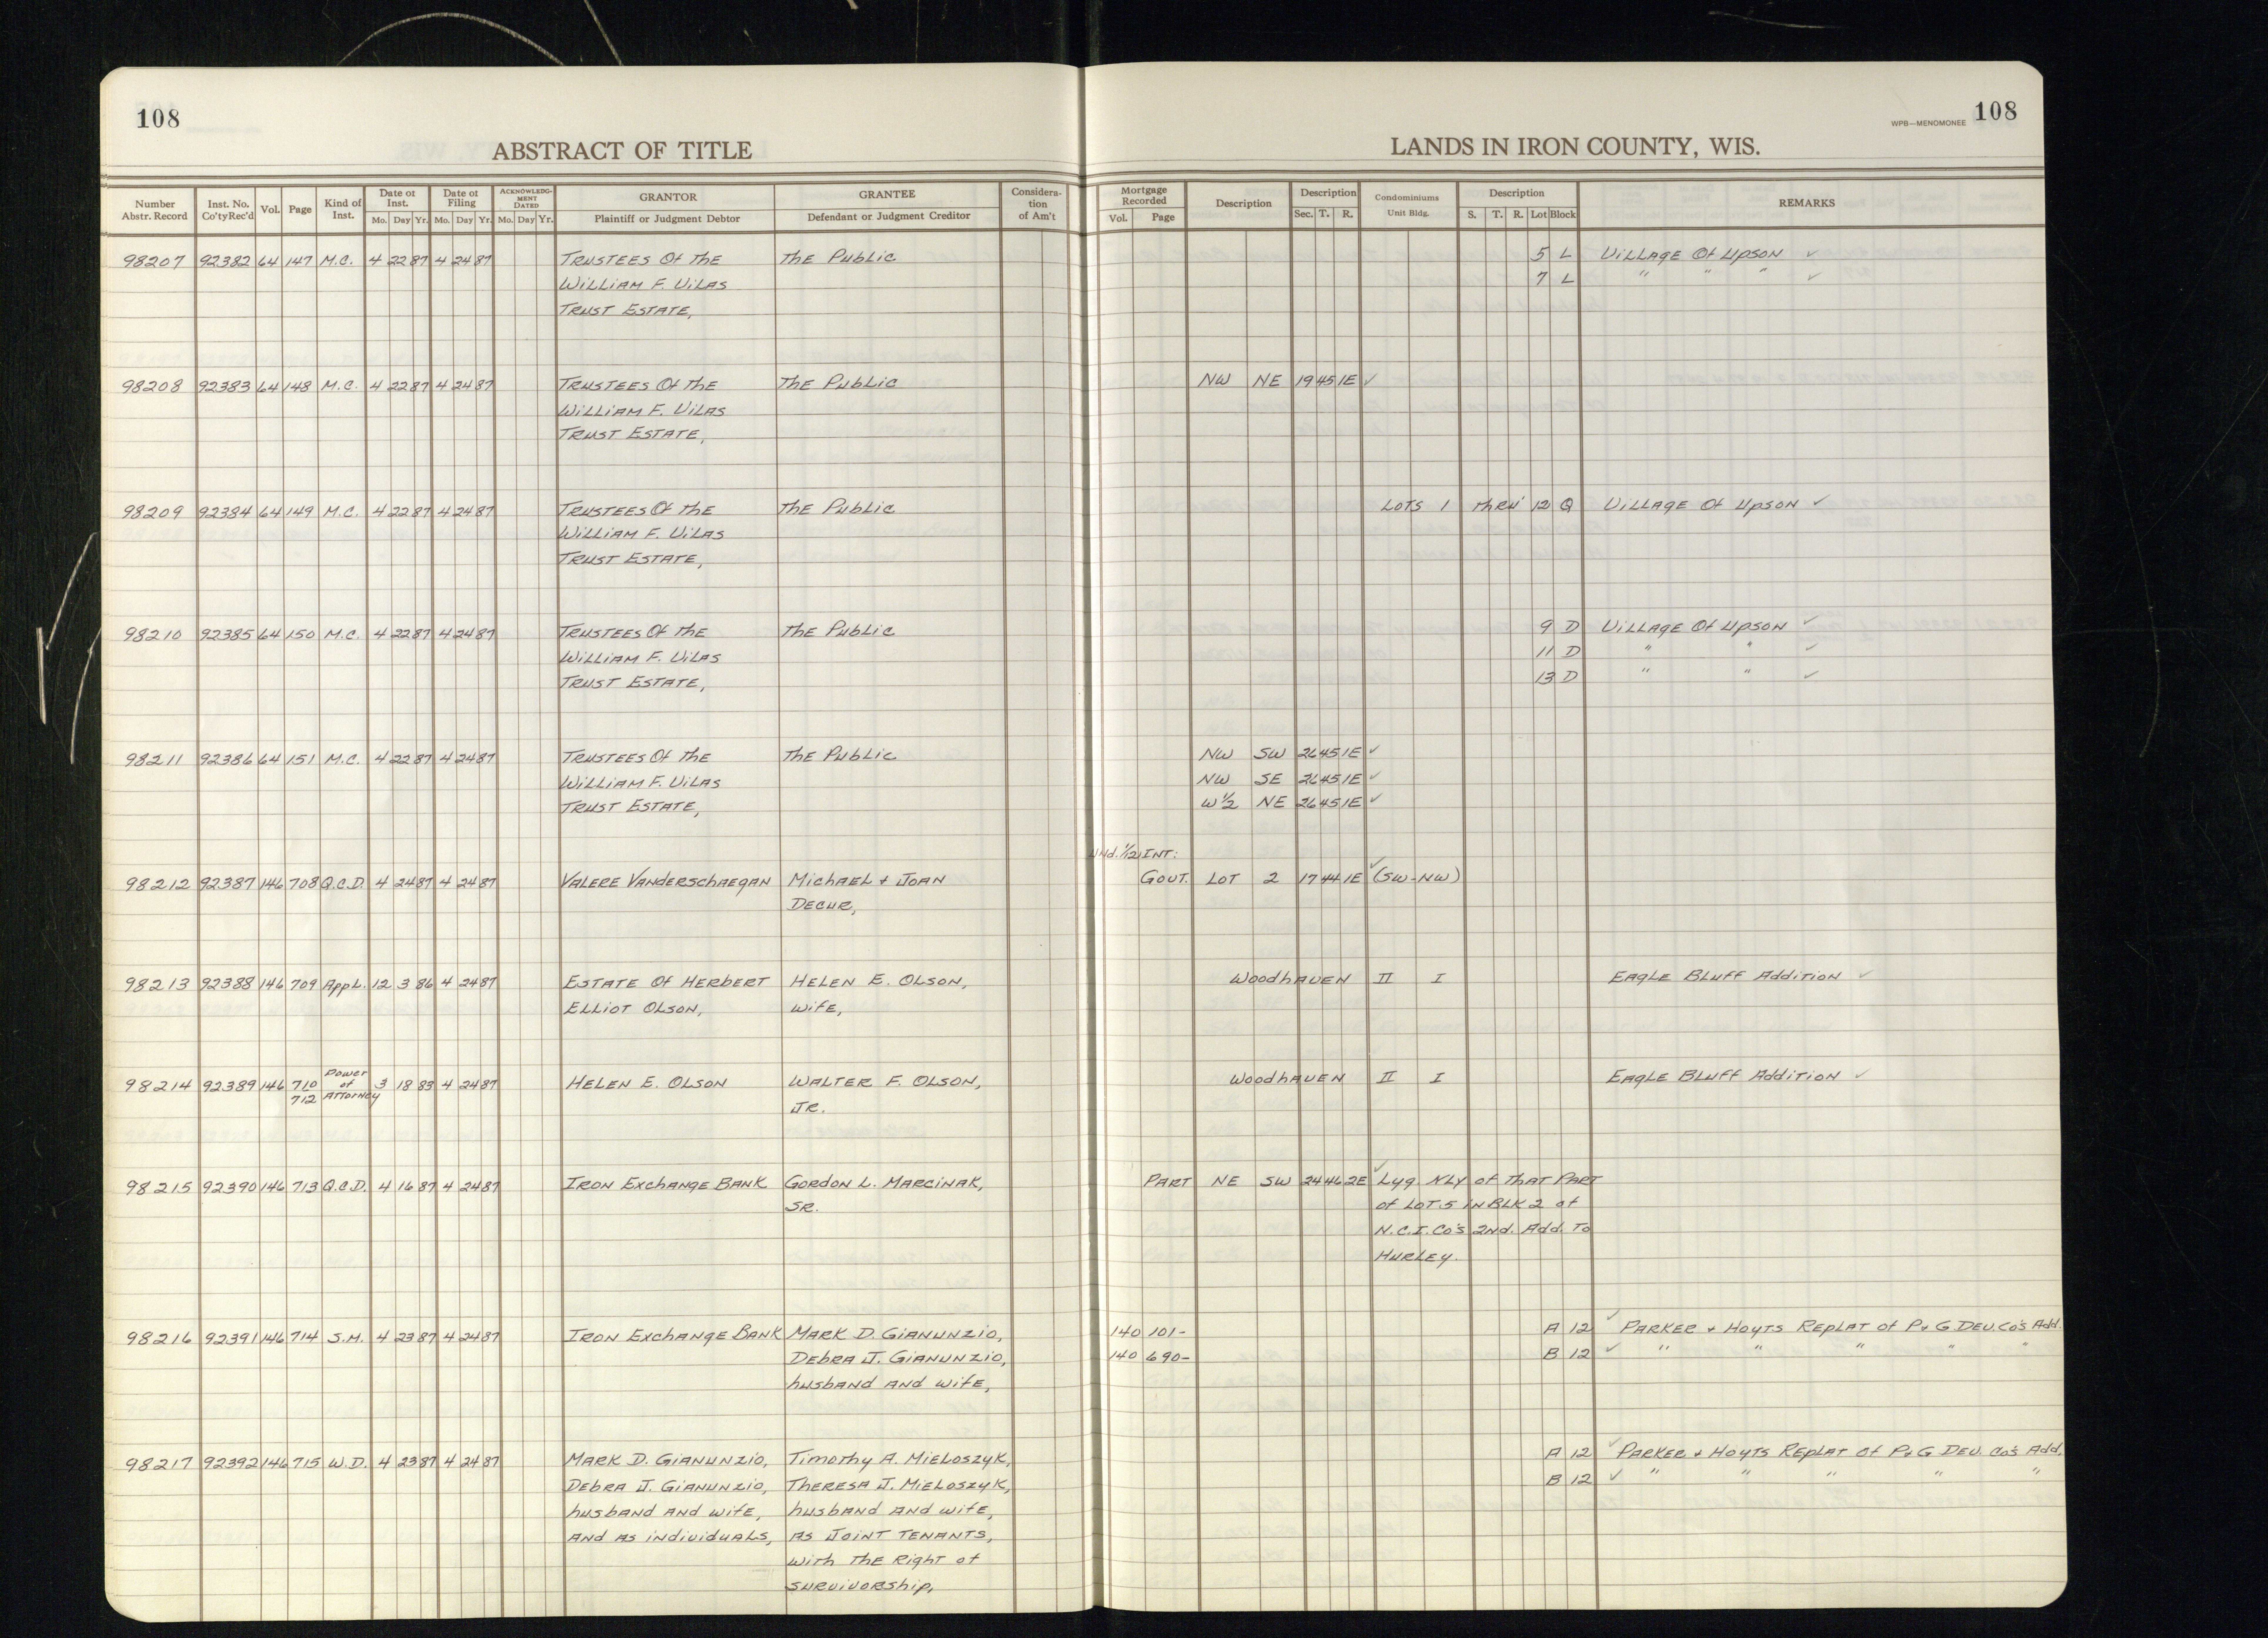 108
ABSTRACT OF TITLE
LANDS IN IRON COUNTY, WIS.
WPB—MENOMONEE 108
Number Abstr. Record | Inst. No. Co'ty Rec'd | Vol. | Page | Kind of Inst. | Date of Inst. Mo. Day Yr. | Date of Filing Mo. Day Yr. | ACKNOWLEDGMENT DATED Mo. Day Yr. | GRANTOR Plaintiff or Judgment Debtor | GRANTEE Defendant or Judgment Creditor | Consideration of Am't | Mortgage Recorded Vol. Page | Description | Description Sec. T. R. | Condominiums Unit Bldg. | Description S. T. R. Lot Block | REMARKS
98207 92382 64 147 M.C. 4 22 87 4 24 87 Trustees Of the The Public 5 L Village Of Upson ✓
William F. Vilas 7 L " " " ✓
Trust Estate,
98208 92383 64 148 M.C. 4 22 87 4 24 87 Trustees Of the The Public NW NE 19 45 1E ✓
William F. Vilas
Trust Estate,
98209 92384 64 149 M.C. 4 22 87 4 24 87 Trustees Of the The Public Lots 1 thru' 12 Q Village Of Upson ✓
William F. Vilas
Trust Estate,
98210 92385 64 150 M.C. 4 22 87 4 24 87 Trustees Of the The Public 9 D Village Of Upson ✓
William F. Vilas 11 D " " ✓
Trust Estate, 13 D " " ✓
98211 92386 64 151 M.C. 4 22 87 4 24 87 Trustees Of the The Public NW SW 26 45 1E ✓
William F. Vilas NW SE 26 45 1E ✓
Trust Estate, W½ NE 26 45 1E ✓
Und. 1/12 Int:
98212 92387 146 708 Q.C.D. 4 24 87 4 24 87 Valere Vanderschaegan Michael + Joan Govt. Lot 2 17 44 1E ✓ (SW-NW)
Decur,
98213 92388 146 709 Appl. 12 3 86 4 24 87 Estate Of Herbert Helen E. Olson, Woodhaven II I Eagle Bluff Addition ✓
Elliot Olson, wife,
98214 92389 146 710 712 Power of Attorney 3 18 83 4 24 87 Helen E. Olson Walter F. Olson, Woodhaven II I Eagle Bluff Addition ✓
Jr.
98215 92390 146 713 Q.C.D. 4 16 87 4 24 87 Iron Exchange Bank Gordon L. Marcinak, Part NE SW 24 46 2E ✓ Lyg Nly of that part
Sr. of Lot 5 in Blk 2 of
N.C.I. Co's 2nd. Add. to
Hurley.
98216 92391 146 714 S.M. 4 23 87 4 24 87 Iron Exchange Bank Mark D. Gianunzio, 140 101- A 12 ✓ Parker + Hoyts Replat of P+G Dev. Co's Add.
Debra J. Gianunzio, 140 690- B 12 ✓ " " " " "
husband and wife,
98217 92392 146 715 W.D. 4 23 87 4 24 87 Mark D. Gianunzio, Timothy A. Mieloszyk, A 12 ✓ Parker + Hoyts Replat of P+G Dev. Co's Add.
Debra J. Gianunzio, Theresa J. Mieloszyk, B 12 ✓ " " " " "
husband and wife, husband and wife,
and as individuals, as Joint Tenants,
with the right of
survivorship,